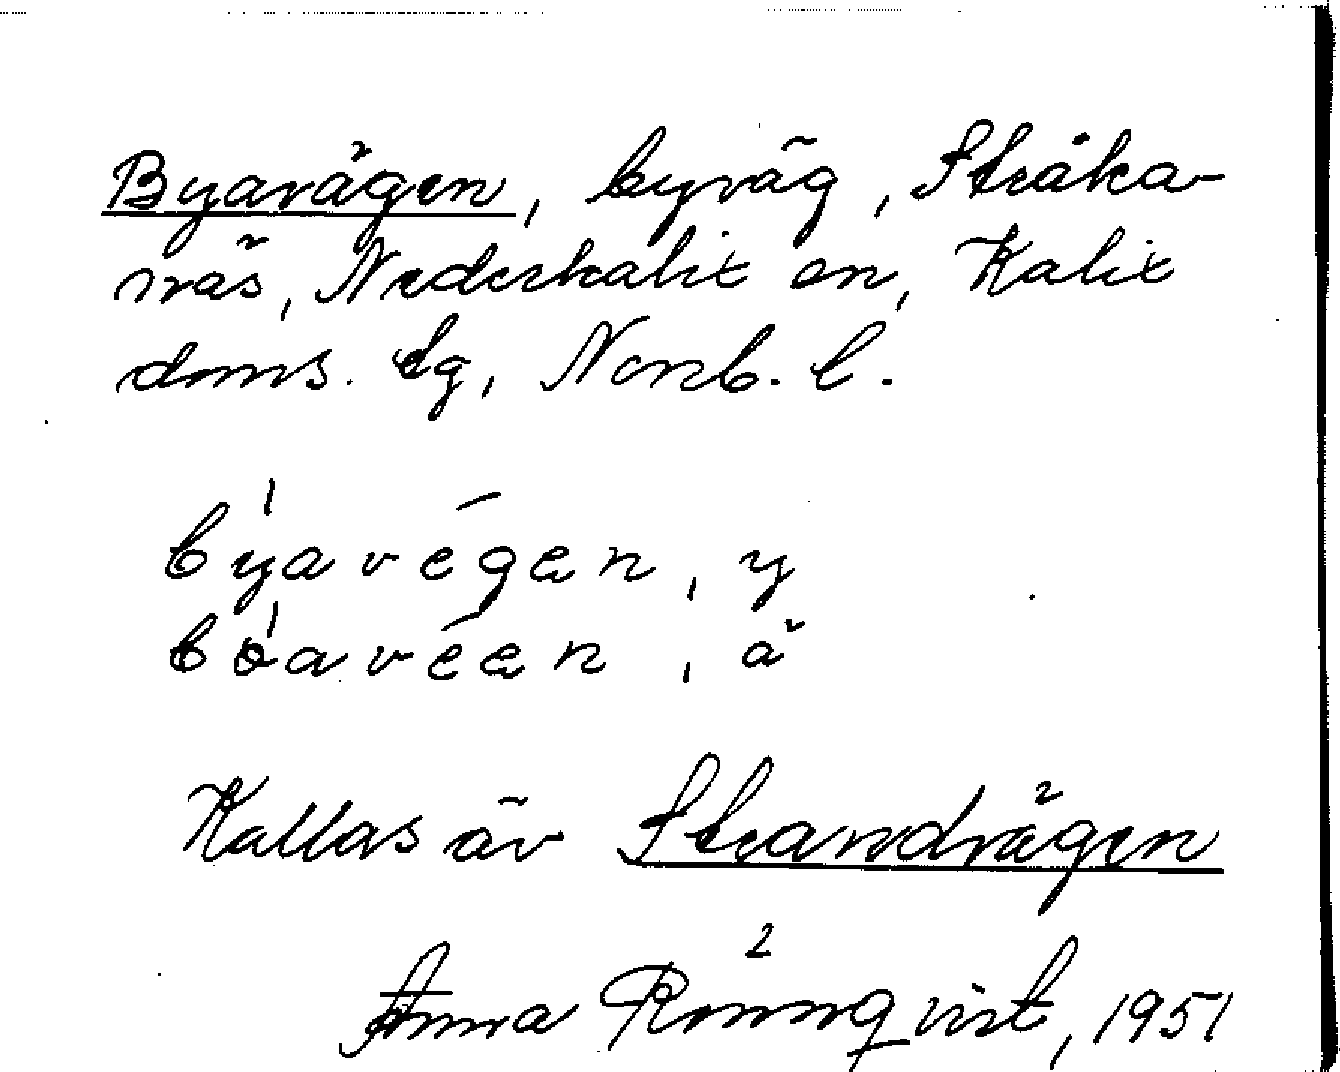 Byavägen, byväg, Stråka-
näs, Nederkalix sn, Kalix
doms. tg, Norrb. l.
býavégen, y
bóavéen, ä
Kallas äv Strandvägen
Anna Rönnqvist, 1951